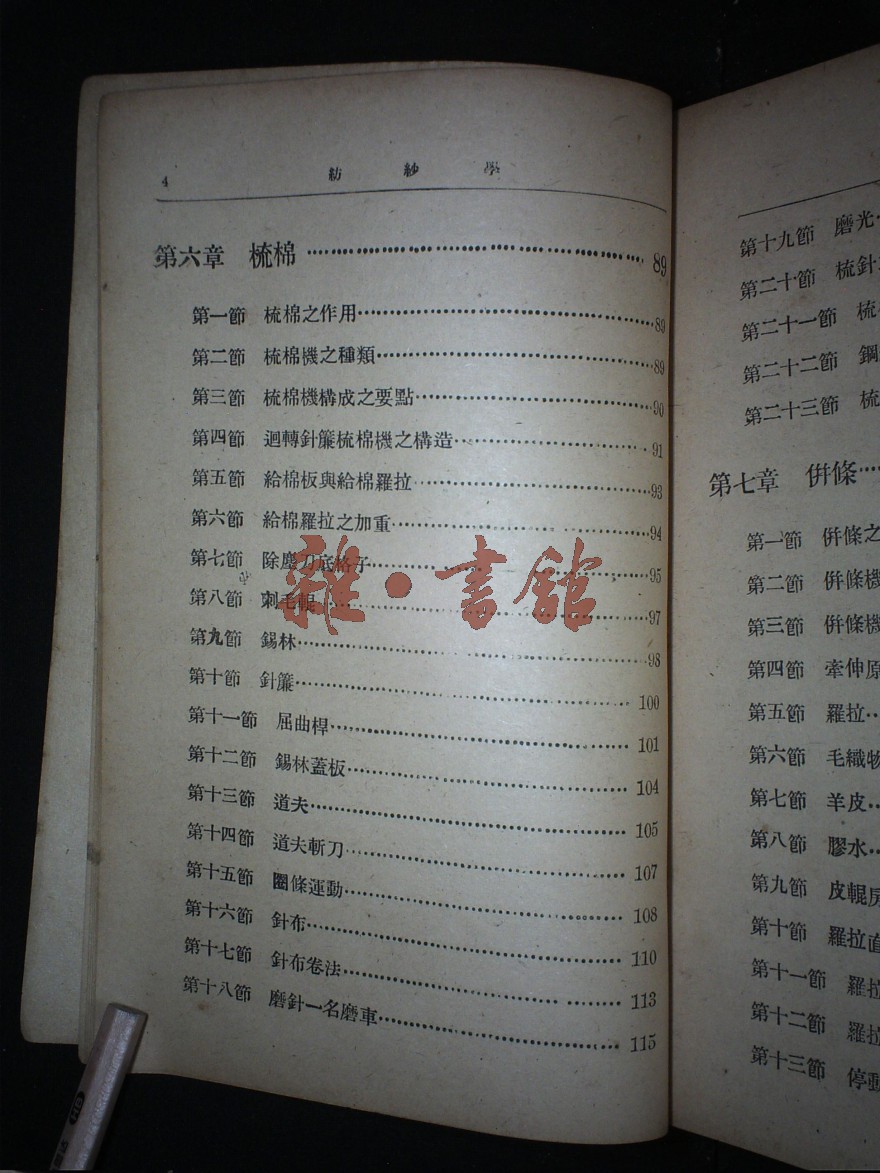 4 紡 紗 學
第六章 梳棉 89
第一節 梳棉之作用 89
第二節 梳棉機之種類 89
第三節 梳棉機構成之要點 90
第四節 迴轉針簾梳棉機之構造 91
第五節 給棉板與給棉羅拉 93
第六節 給棉羅拉之加重 94
第七節 除塵刀底格子 95
第八節 刺毛輥 97
第九節 錫林 98
第十節 針簾 100
第十一節 屈曲桿 101
第十二節 錫林蓋板 104
第十三節 道夫 105
第十四節 道夫斬刀 107
第十五節 圈條運動 108
第十六節 針布 110
第十七節 針布卷法 113
第十八節 磨針一名磨車 115
雜·書館
第十九節 磨光
第二十節 梳針
第二十一節 梳
第二十二節 鋼
第二十三節 梳
第七章 併條
第一節 併條之
第二節 併條機
第三節 併條機
第四節 牽伸原
第五節 羅拉
第六節 毛織物
第七節 羊皮
第八節 膠水
第九節 皮輥房
第十節 羅拉直
第十一節 羅拉
第十二節 羅拉
第十三節 停動